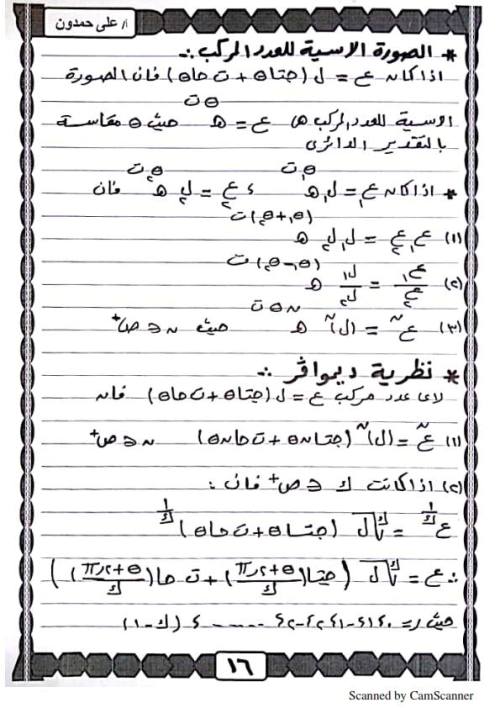 أ/ على حمدون
* الصورة الاسية للعدد المركب :-
اذا كان ع = ل (حتا θ + ت حا θ) فان الصورة
الاسية للعدد المركب هى ع = ل هـ^(θ ت) حيث θ مقاسة
بالتقدير الدائرى
* اذا كان ع₁ = ل₁ هـ^(θ₁ ت) ، ع₂ = ل₂ هـ^(θ₂ ت) فان
(١) ع₁ ع₂ = ل₁ ل₂ هـ^((θ₁+θ₂) ت)
(٢) ع₁/ع₂ = ل₁/ل₂ هـ^((θ₁-θ₂) ت)
(٣) ع^ن = (ل)^ن هـ^(ن θ ت) حيث ن ∈ ص+
* نظرية ديموافر :-
لاى عدد مركب ع = ل (حتا θ + ت حا θ) فان
(١) ع^ن = (ل)^ن (حتا ن θ + ت حا ن θ) ن ∈ ص+
(٢) اذا كانت ك ∈ ص+ فان :
ع^(١/ك) = ك√ل (حتا θ + ت حا θ)^(١/ك)
∴ ع = ك√ل (حتا((θ+٢ر π)/ك) + ت حا((θ+٢ر π)/ك))
حيث ر = ٠، ١، -١، ٢، -٢، ...... ، (ك-١)
١٦
Scanned by CamScanner